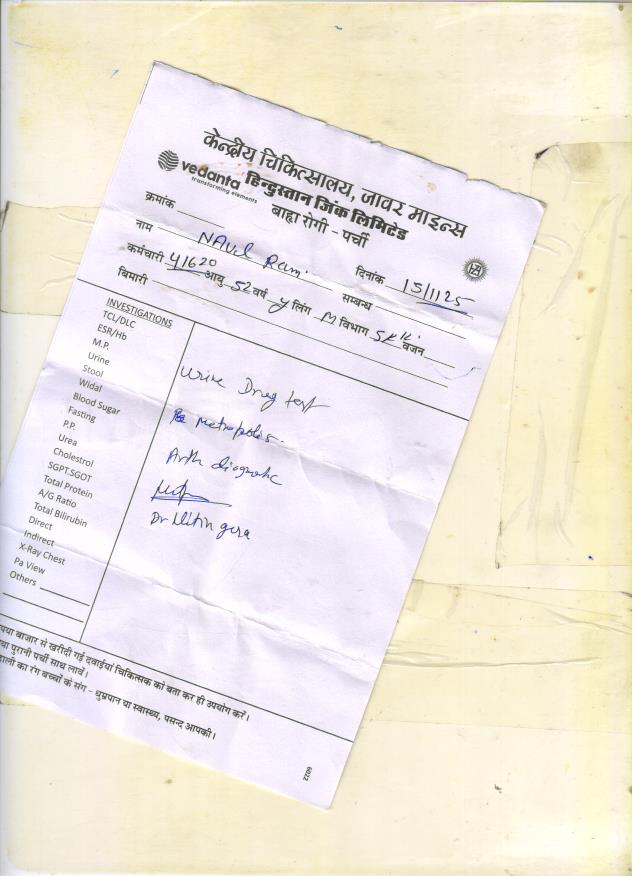 केन्द्रीय चिकित्सालय, जावर माइन्स
vedanta हिन्दुस्तान जिंक लिमिटेड
transforming elements
बाह्य रोगी - पर्ची
क्रमांक
नाम Naval Ram. दिनांक 15/11/25
कर्मचारी 41620 सम्बन्ध
आयु 52 वर्ष y लिंग M विभाग SK वजन
बिमारी
INVESTIGATIONS
TCL/DLC
ESR/Hb
M.P.
Urine
Stool
Widal
Blood Sugar
Fasting
P.P.
Urea
Cholestrol
SGPT.SGOT
Total Protein
A/G Ratio
Total Bilirubin
Direct
Indirect
X-Ray Chest
Pa View
Others
Urine Drug test
Metropolis.
Arth diagnostic
Dr Nitin gera
बाजार से खरीदी गई दवाईयां चिकित्सक को बता कर ही उपयोग करें।
पुरानी पर्ची साथ लावें।
का रंग बच्चों के संग - धुम्रपान या स्वास्थ्य, पसन्द आपकी।
6022